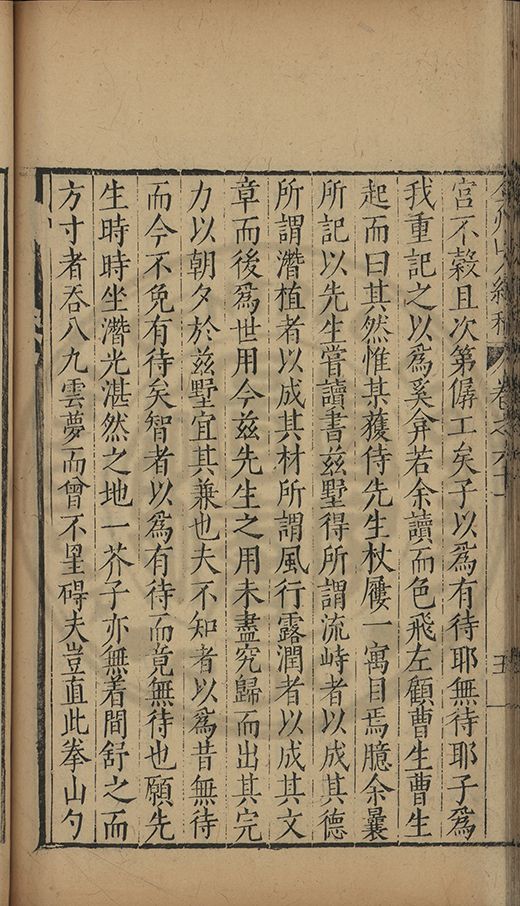 宫不穀且次第僝工矣子以爲有待耶無待耶子爲
我重記之以爲奚弇若余讀而色飛左顧曹生曹生
起而曰其然惟某獲侍先生杖屨一寓目焉臆余曩
所記以先生嘗讀書兹墅得所謂流峙者以成其德
所謂潛植者以成其材所謂風行露潤者以成其文
章而後爲世用今兹先生之用未盡究歸而出其完
力以朝夕於兹墅宜其兼也夫不知者以爲昔無待
而今不免有待矣智者以爲有待而竟無待也願先
生時時坐潛光湛然之地一芥子亦無着間舒之而
方寸者吞八九雲夢而曾不罣碍夫豈直此拳山勺